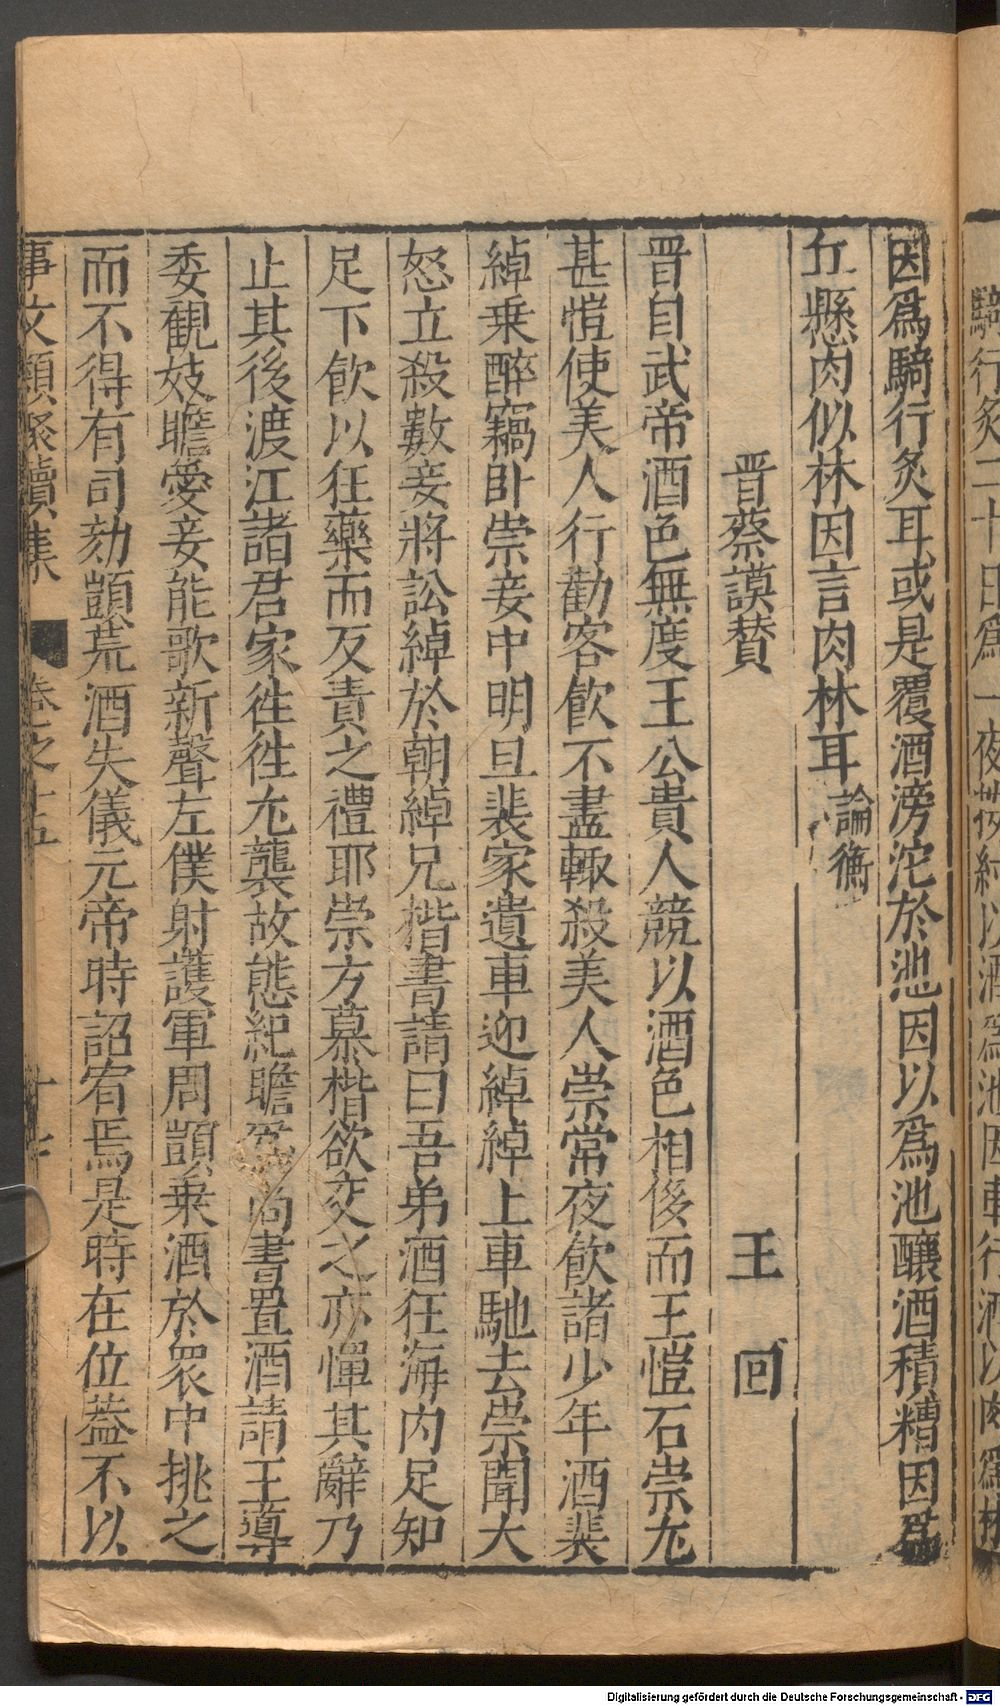 騎行炙二十日爲一夜按紂以酒爲池因車行酒以肉爲林
因爲騎行炙耳或是覆酒滂沱於池因以爲池釀酒積糟因爲
丘懸肉似林因言肉林耳論衡
晋蔡謨賛 王回
晋自武帝酒色無度王公貴人競以酒色相侈而王愷石崇尤
甚愷使美人行勸客飲不盡輙殺美人崇常夜飲諸少年酒裴
綽乗醉竊卧崇妾中明旦裴家遺車迎綽綽上車馳去崇聞大
怒立殺數妾將訟綽於朝綽兄楷書請曰吾弟酒狂海内足知
足下飲以狂藥而反責之禮耶崇方慕楷欲交之亦憚其辭乃
止其後渡江諸君家徃徃尤襲故態紀瞻爲尚書置酒請王導
委觀妓瞻愛妾能歌新聲左僕射護軍周顗乗酒於衆中挑之
而不得有司劾顗荒酒失儀元帝時詔宥焉是時在位葢不以
事文類聚續集 卷之十五 十
Digitalisierung gefördert durch die Deutsche Forschungsgemeinschaft - DFG